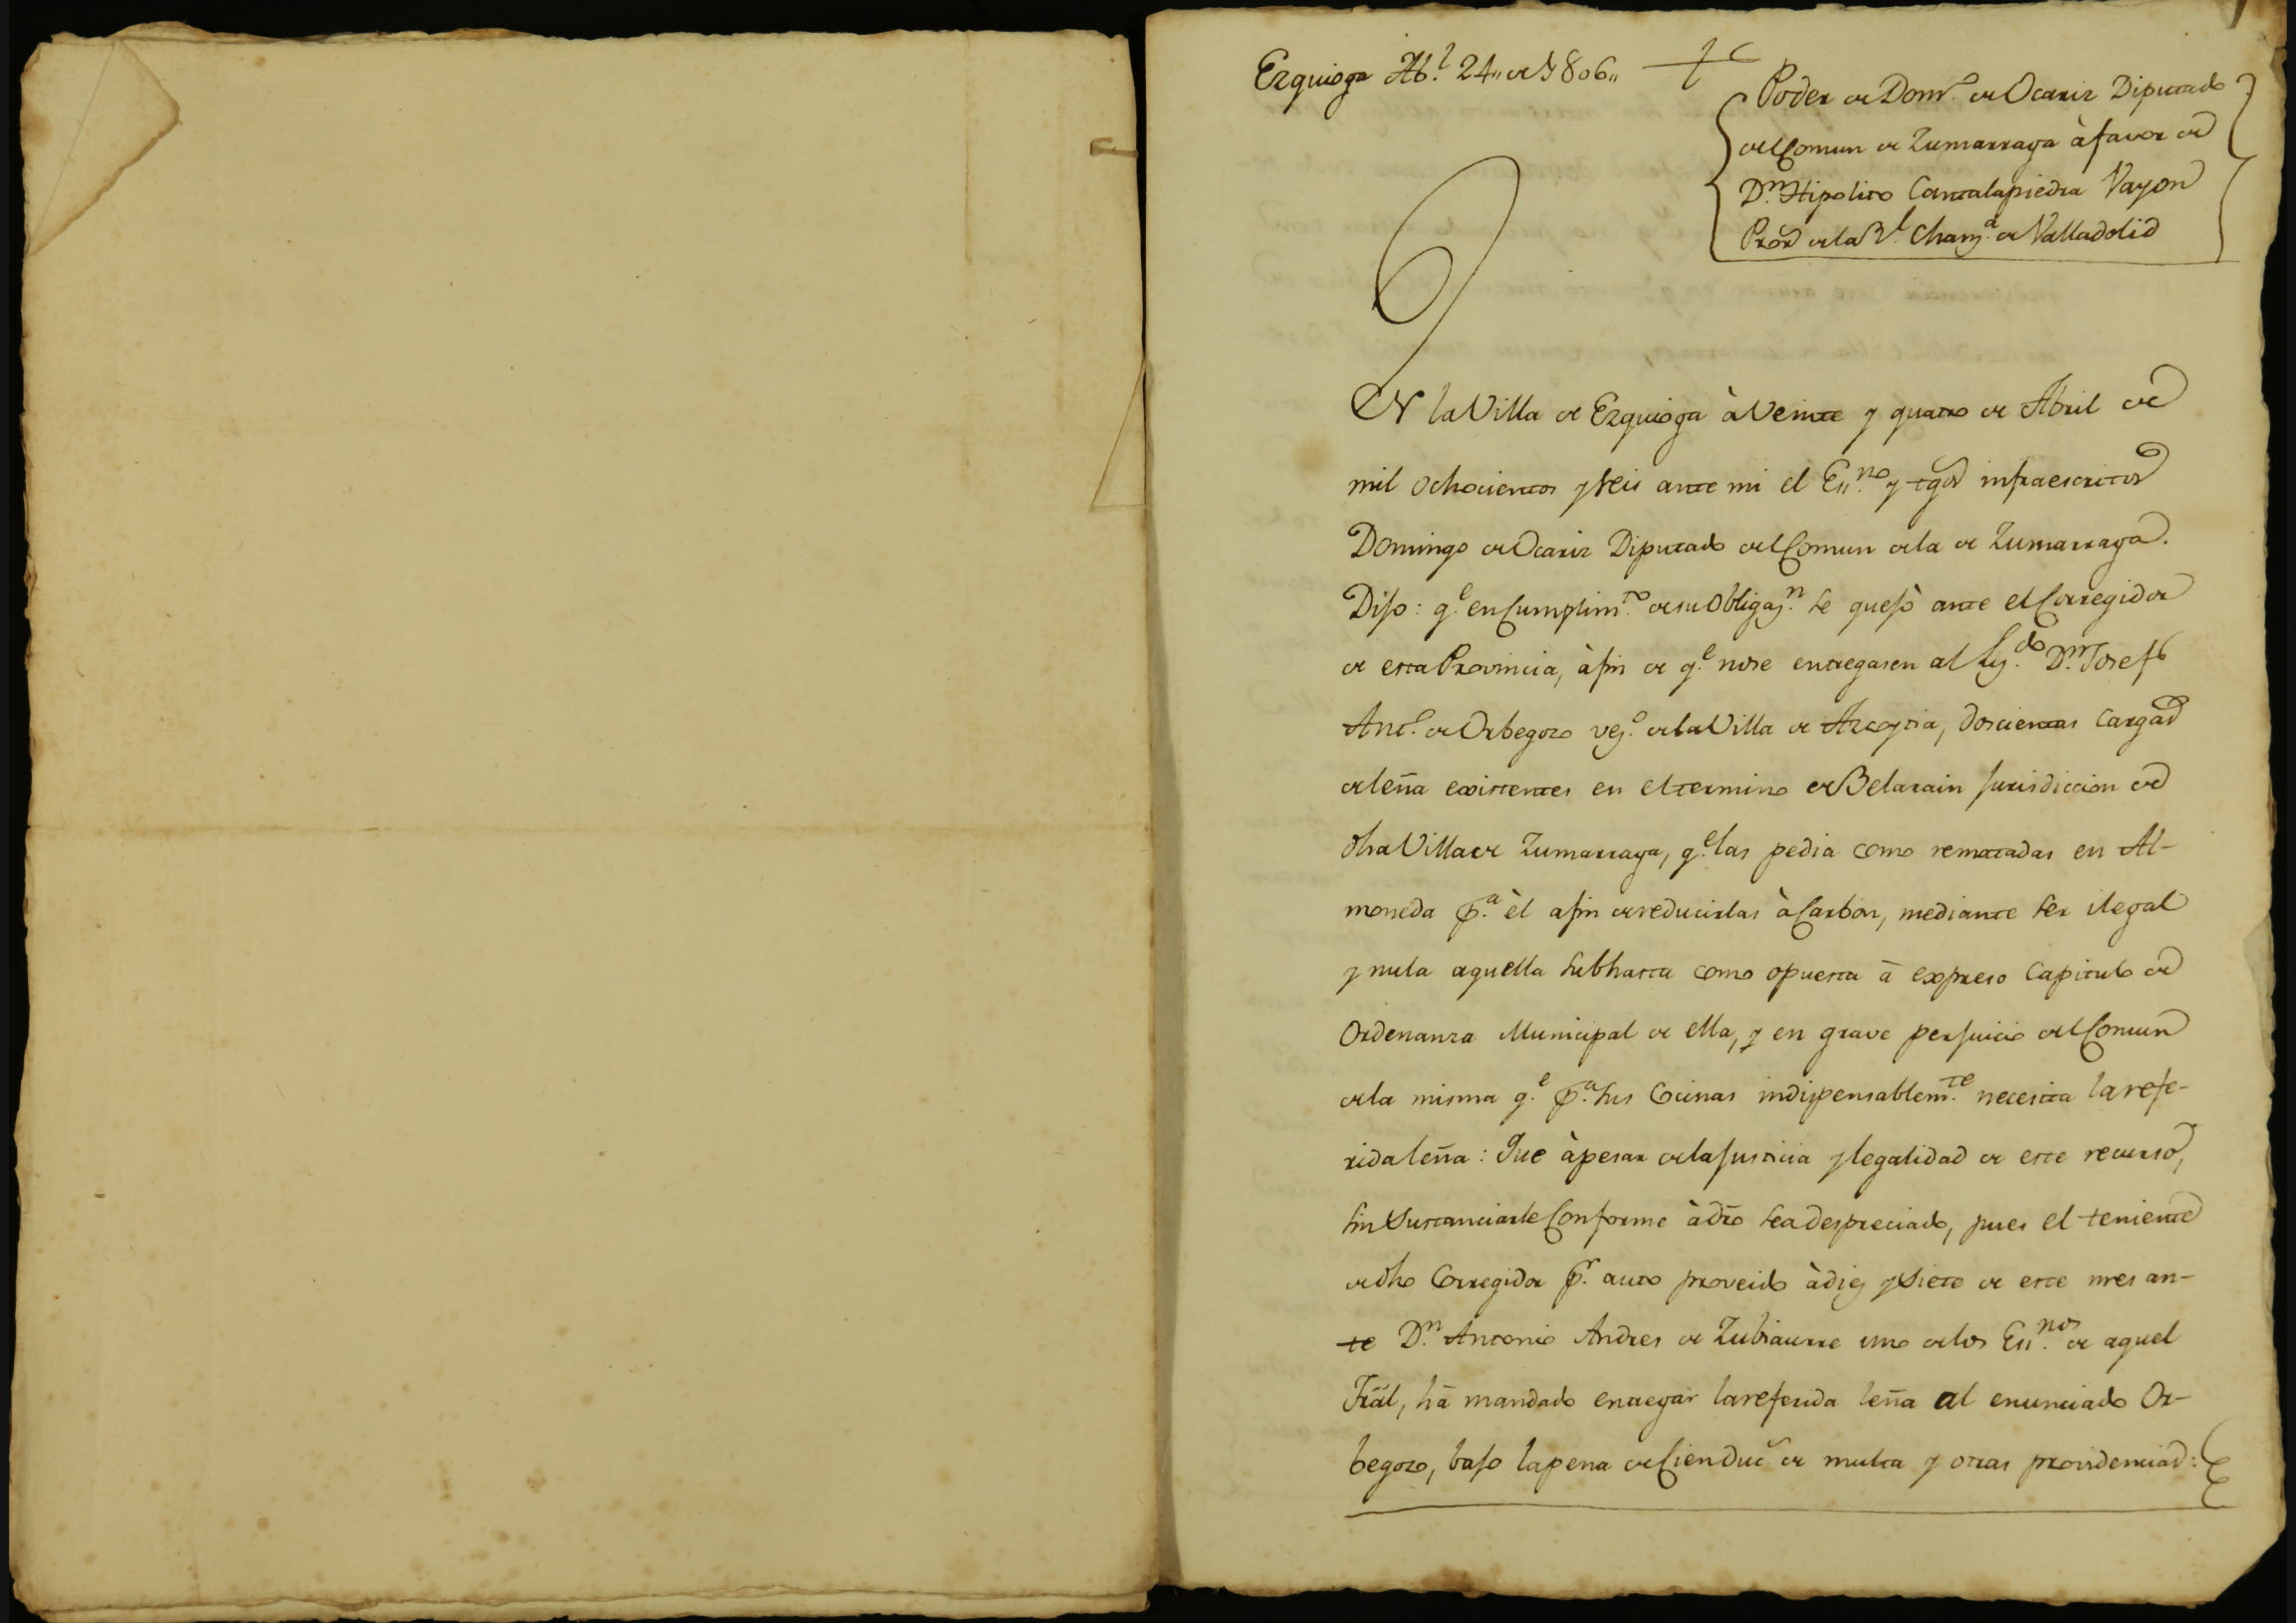 Ezquioga Ab.l 24,, de 1806,,
Poder de Dom.o de Ocariz Diputado
del Comun de Zumarraga à favor de
D.n Hipolito Cantalapiedra Vayon
Pror de la R.l Chanz.a de Valladolid
EN la Villa de Ezquioga à Veinte y quatro de Abril de
mil ochocientos y seis ante mi el Es.no y tgos infraescritos
Domingo de Ocariz Diputado del Comun de la de Zumarraga.
Dijo: q.e en Cumplim.to de su Obligaz.n se quejò ante el Corregidor
de esta Provincia, à fin de q.e no se entregasen al Liz.do D.n Josef
Ant.o de Orbegozo vez.o de la Villa de Azcoytia, doscientas cargas
de leña existentes en el termino de Belarain Jurisdiccion de
dha Villa de Zumarraga, q.e las pedia como rematadas en Al-
moneda p.a èl a fin de reducirlas à Carbon, mediante ser ilegal
y nula aquella subhasta como opuesta ā expreso Capitulo de
Ordenanza Municipal de ella, y en grave perjuicio del Comun
de la misma q.e p.a sus Cocinas indispensablem.te necesita la refe-
rida leña: Que àpesar de la justicia y legalidad de este recurso,
sin Sustanciarle Conforme à dro sea despreciado, pues el teniente
de dho Corregidor p.r auto proveido à diez y Siete de este mes an-
te D.n Antonio Andres de Zubiaurre uno de los Es.nos de aquel
Tral, hā mandado entregar la referida leña al enunciado Or-
begozo, bajo la pena de Cien duc.s de multa y otras providencias: